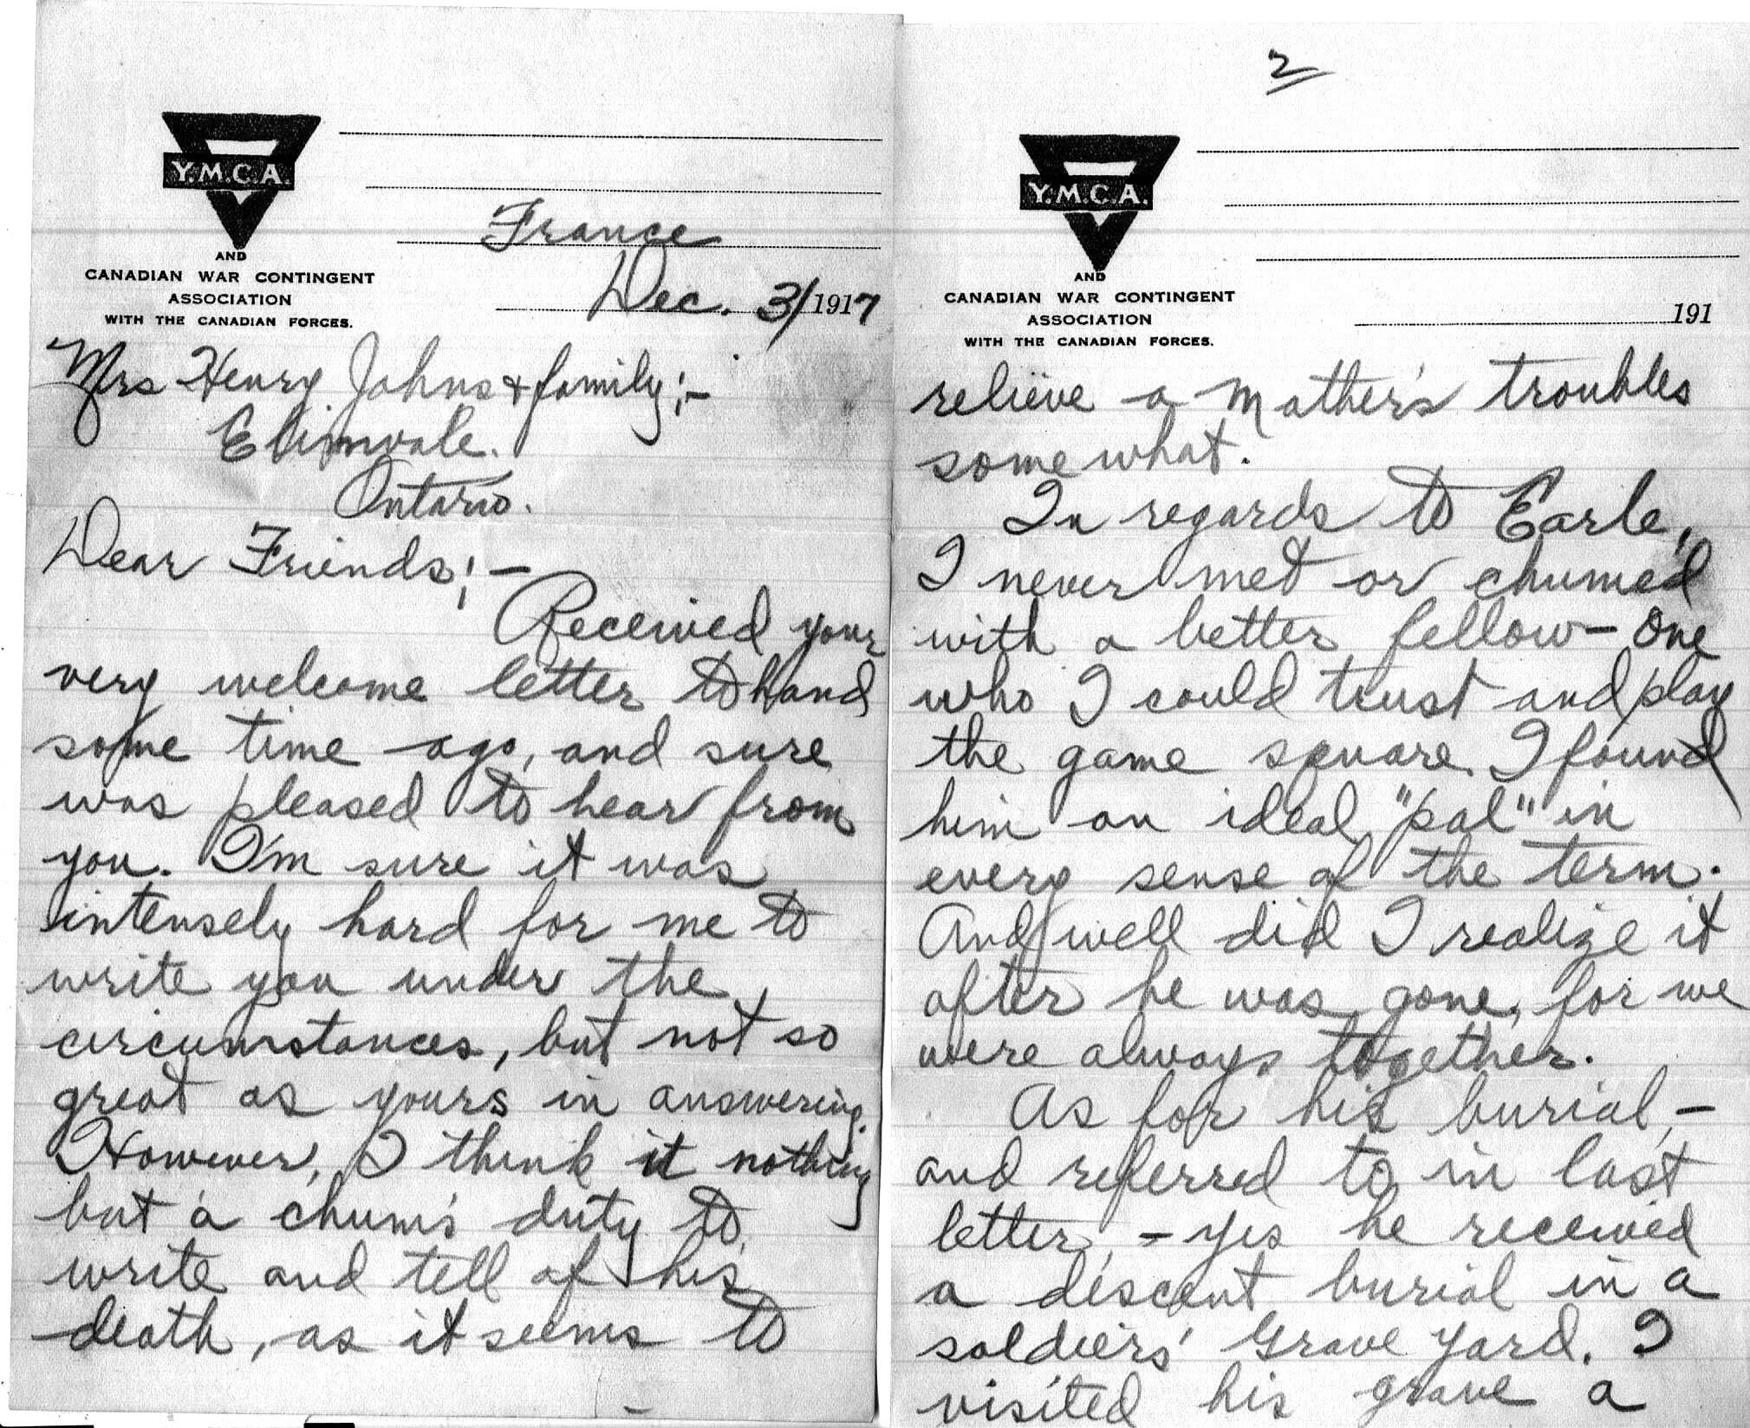 Y.M.C.A.
AND
CANADIAN WAR CONTINGENT
ASSOCIATION
WITH THE CANADIAN FORCES.
France
Dec. 3/1917
Mrs Henry Johns & family;-
Elimvale.
Ontario.
Dear Friends;-
Received your
very welcome letter to hand
some time ago, and sure
was pleased to hear from
you. I'm sure it was
intensely hard for me to
write you under the
circumstances, but not so
great as yours in answering.
However, I think it nothing
but a chum's duty to
write and tell of his
death, as it seems to
2
Y.M.C.A.
AND
CANADIAN WAR CONTINGENT
ASSOCIATION
WITH THE CANADIAN FORCES.
191
relieve a mother's troubles
somewhat.
In regards to Earle,
I never met or chumed
with a better fellow - one
who I could trust and play
the game square. I found
him an ideal "pal" in
every sense of the term.
And well did I realize it
after he was gone, for we
were always together.
As for his burial, -
and referred to in last
letter, - yes he received
a descent burial in a
soldiers' Grave Yard. I
visited his grave a